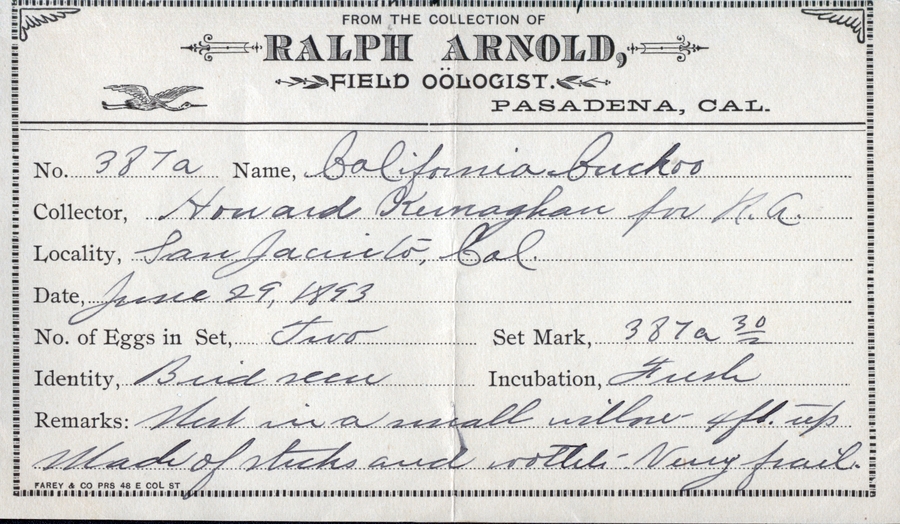 FROM THE COLLECTION OF
RALPH ARNOLD,
FIELD OÖLOGIST.
PASADENA, CAL.
No. 387a Name, California Cuckoo
Collector, Howard for R. A.
Locality, San Jacinto, Cal.
Date, June 29, 1893
No. of Eggs in Set, Two Set Mark, 387a 30/2
Identity, Bird seen Incubation, Fresh
Remarks: Nest in a small willow 4 ft. up
Made of sticks and Very frail.
FAREY & CO PRS 48 E COL ST